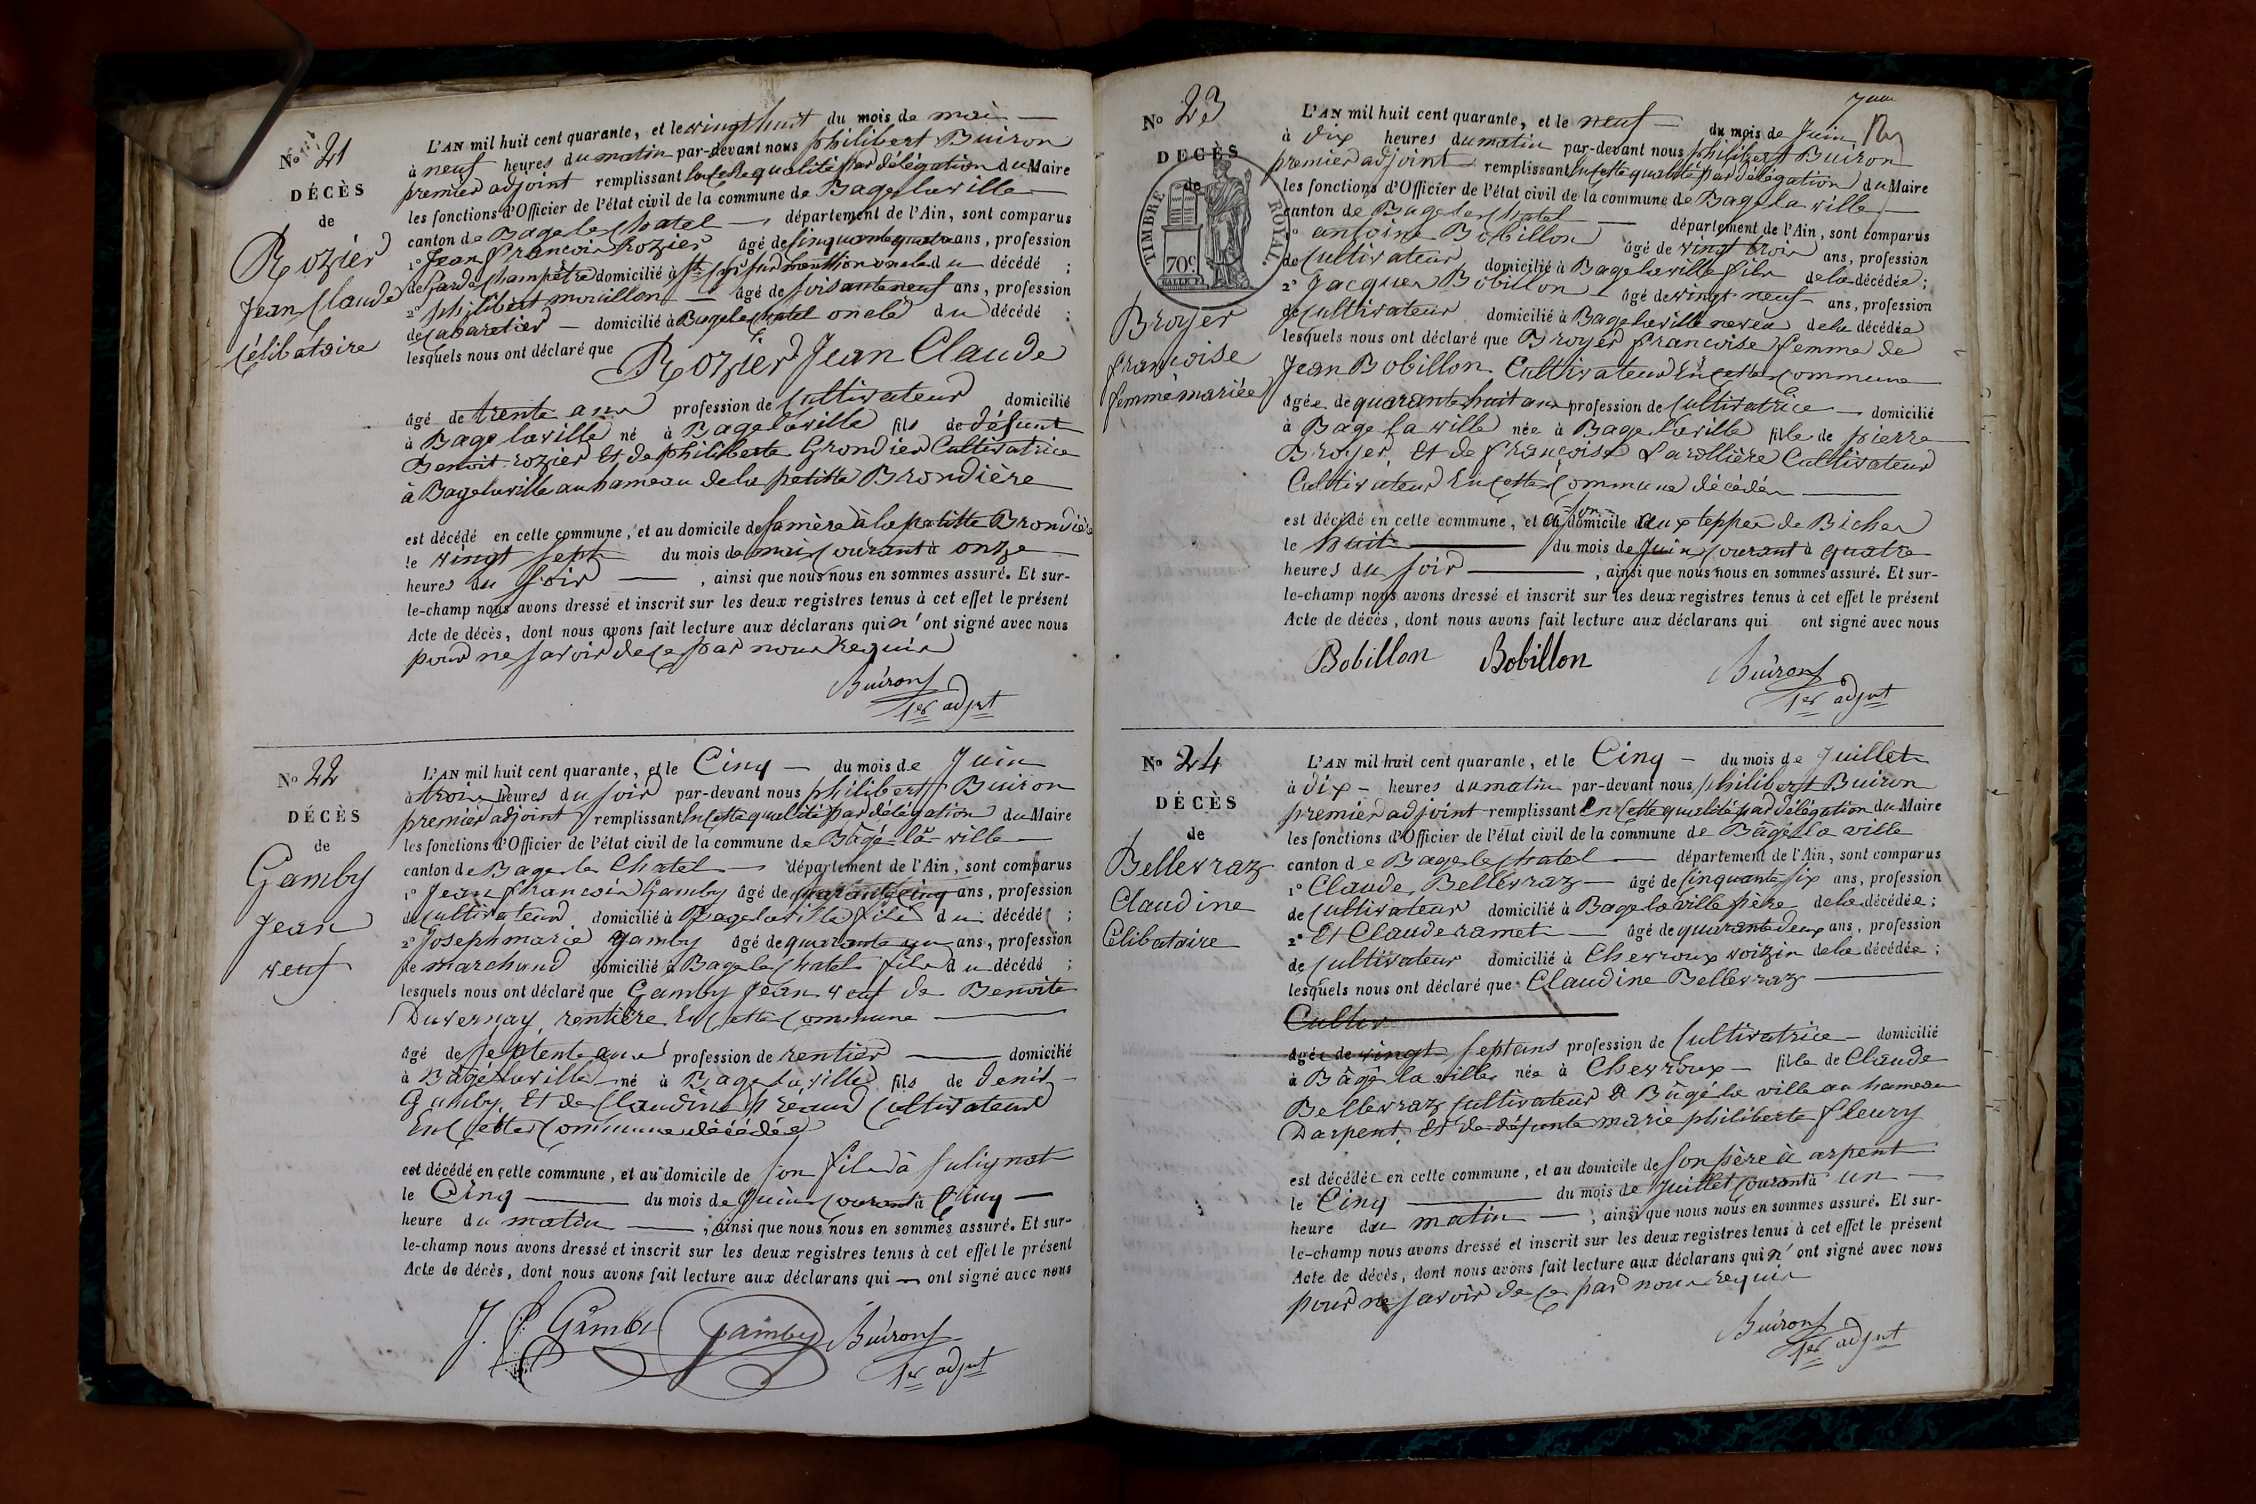 No 21
DÉCÈS
de
Rozier
Jean Claude
Célibataire
L'AN mil huit cent quarante, et le vingt huit du mois de mai
à neuf heures du matin par-devant nous philibert Buiron
premier adjoint remplissant en cette qualité par délégation du Maire
les fonctions d'Officier de l'état civil de la commune de Bagé la ville
canton de Bagé le Chatel département de l'Ain, sont comparus
1o Jean françois Rozier âgé de cinquante quatre ans, profession
de Garde Champêtre domicilié à oncle du décédé ;
2o philibert mouillon âgé de soisante neuf ans, profession
de Cabaretier domicilié à Bagé le Chatel oncle du décédé ;
lesquels nous ont déclaré que
Rozier Jean Claude
âgé de trente ans profession de Cultivateur domicilié
à Bagé la ville né à Bagé la ville fils de défunt
Benoit rozier Et de philiberte Grondier Cultivatrice
à Bagé la ville au hameau de la petitte Brondière
est décédé en cette commune, et au domicile de sa mère à la petitte Brondière
le vingt sept du mois de mai courant à onze
heures du soir , ainsi que nous nous en sommes assuré. Et sur-
le-champ nous avons dressé et inscrit sur les deux registres tenus à cet effet le présent
Acte de décès, dont nous avons fait lecture aux déclarans qui n'ont signé avec nous
pour ne savoir de ce par nous requis
Buiron
1er adjnt
No 22
DÉCÈS
de
Gamby
Jean
veuf
L'AN mil huit cent quarante, et le Cinq du mois de Juin
à trois heures du soir par-devant nous philibert Buiron
premier adjoint remplissant en cette qualité par délégation du Maire
les fonctions d'Officier de l'état civil de la commune de Bâgé-la-ville
canton de Bagé le Chatel département de l'Ain, sont comparus
1o Jean françois Gamby âgé de quarante cinq ans, profession
de Cultivateur domicilié à Bagé la ville fils du décédé ;
2o Joseph marie gamby âgé de quarante un ans, profession
de marchand domicilié à Bagé le Chatel fils du décédé ;
lesquels nous ont déclaré que Gamby Jean veuf de Benoite
Duvernay, rentière En cette Commune
âgé de septente ans profession de rentier domicilié
à Bagé la ville né à Bagé la ville fils de denis
Gamby, Et de Claudine préaud Cultivateurs
En cette Commune décédés
est décédé en cette commune, et au domicile de son fils à sulignat
le Cinq du mois de Juin courant à Cinq
heure du matin ; ainsi que nous nous en sommes assuré. Et sur-
le-champ nous avons dressé et inscrit sur les deux registres tenus à cet effet le présent
Acte de décès, dont nous avons fait lecture aux déclarans qui ont signé avec nous
J. f. Gambi Gamby Buiron
1er adjnt
No 23
DÉCÈS
de
TIMBRE ROYAL
70c
Broyer
françoise
femme mariée
L'AN mil huit cent quarante, et le neuf du mois de Juin
à dix heures du matin par-devant nous philibert Buiron
premier adjoint remplissant en cette qualité par délégation du Maire
les fonctions d'Officier de l'état civil de la commune de Bagé la ville
canton de Bagé le Chatel département de l'Ain, sont comparus
1o antoine Bobillon âgé de vingt trois ans, profession
de Cultivateur domicilié à Bagé la ville fils de la décédée ;
2o Jacques Bobillon âgé de vingt neuf ans, profession
de Cultivateur domicilié à Bagé la ville neveu de la décédée
lesquels nous ont déclaré que Broyer françoise femme de
Jean Bobillon Cultivateur En cette Commune
âgée de quarante huit ans profession de Cultivatrice domicilié
à Bagé la ville née à Bagé la ville fille de pierre
Broyer, Et de françoise Larollière Cultivateur
Cultivateur En cette Commune décédés
est décédé en cette commune, et à son domicile aux teppes de Biches
le huit du mois de Juin courant à quatre
heures du soir , ainsi que nous nous en sommes assuré. Et sur-
le-champ nous avons dressé et inscrit sur les deux registres tenus à cet effet le présent
Acte de décès, dont nous avons fait lecture aux déclarans qui ont signé avec nous
Bobillon Bobillon Buiron
1er adjnt
No 24
DÉCÈS
de
Bellevraz
Claudine
Célibataire
L'AN mil huit cent quarante, et le Cinq du mois de Juillet
à dix heures du matin par-devant nous philibert Buiron
premier adjoint remplissant En cette qualité par délégation du Maire
les fonctions d'Officier de l'état civil de la commune de Bâgé la ville
canton de Bagé le Chatel département de l'Ain, sont comparus
1o Claude Bellevraz âgé de cinquante six ans, profession
de Cultivateur domicilié à Bagé la ville père de la décédée ;
2o Et Claude ramet âgé de quarante deux ans, profession
de Cultivateur domicilié à Chevroux voizin de la décédée ;
lesquels nous ont déclaré que Claudine Bellevraz
Cultiv
âgée de vingt sept ans profession de Cultivatrice domicilié
à Bâgé la ville née à Chevroux fille de Claude
Bellevraz Cultivateur à Bâgé la ville au hameau
Darpent, Et de défunte marie philiberte fleury
est décédée en cette commune, et au domicile de son père à arpent
le Cinq du mois de Juillet courant à un
heure du matin ; ainsi que nous nous en sommes assuré. Et sur-
le-champ nous avons dressé et inscrit sur les deux registres tenus à cet effet le présent
Acte de décès, dont nous avons fait lecture aux déclarans qui n'ont signé avec nous
pour ne savoir de ce par nous requis
Buiron
1er adjnt